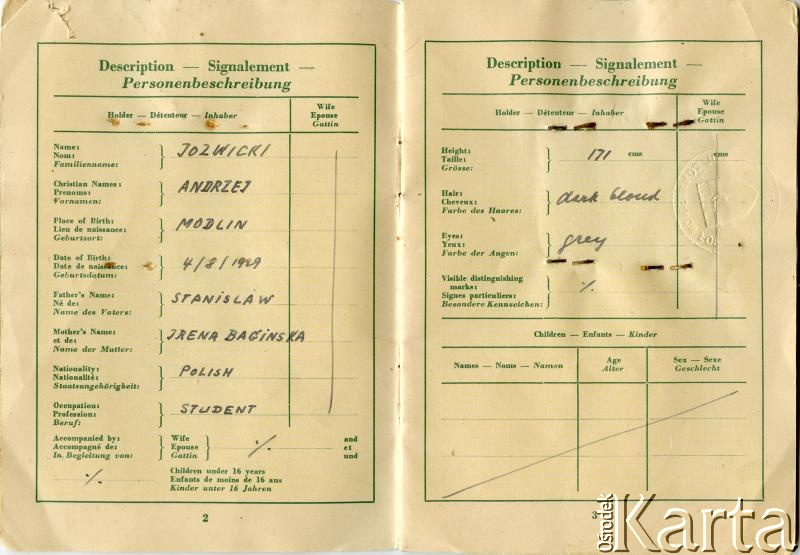 Description — Signalement —
Personenbeschreibung
Holder — Détenteur — Inhaber
Wife
Epouse
Gattin
Name:
Nom:
Familienname:
JOZWICKI
Christian Names:
Prenoms:
Vornamen:
ANDRZEJ
Place of Birth:
Lieu de naissance:
Geburtsort:
MODLIN
Date of Birth:
Date de naissance:
Geburtsdatum:
4/8/1929
Father's Name:
Né de:
Name des Vaters:
STANISLAW
Mother's Name:
et de:
Name der Mutter:
IRENA BAGINSKA
Nationality:
Nationalité:
Staatsangehörigkeit:
POLISH
Occupation:
Profession:
Beruf:
STUDENT
Accompanied by:
Accompagné de:
In Begleitung von:
Wife
Epouse
Gattin
·/.
and
et
und
·/.
Children under 16 years
Enfants de moins de 16 ans
Kinder unter 16 Jahren
2
Description — Signalement —
Personenbeschreibung
Holder — Détenteur — Inhaber
Wife
Epouse
Gattin
Height:
Taille:
Grösse:
171 cms
cms
Hair:
Cheveux:
Farbe des Haares:
dark blond
Eyes:
Yeux:
Farbe der Augen:
grey
Visible distinguishing
marks:
Signes particuliers:
Besondere Kennzeichen:
·/.
Children — Enfants — Kinder
Names — Noms — Namen
Age
Alter
Sex — Sexe
Geschlecht
3
Ośrodek
Karta